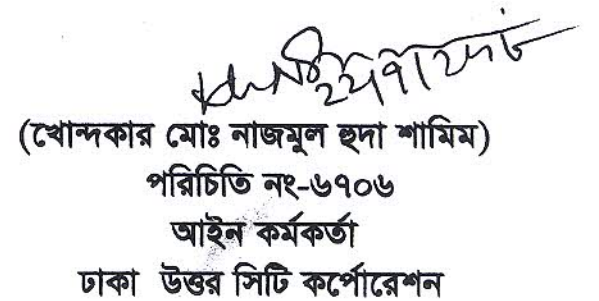 (খোন্দকার মোঃ নাজমুল হুদা শামিম)
পরিচিতি নং-৬৭০৬
আইন কর্মকর্তা
ঢাকা উত্তর সিটি কর্পোরেশন